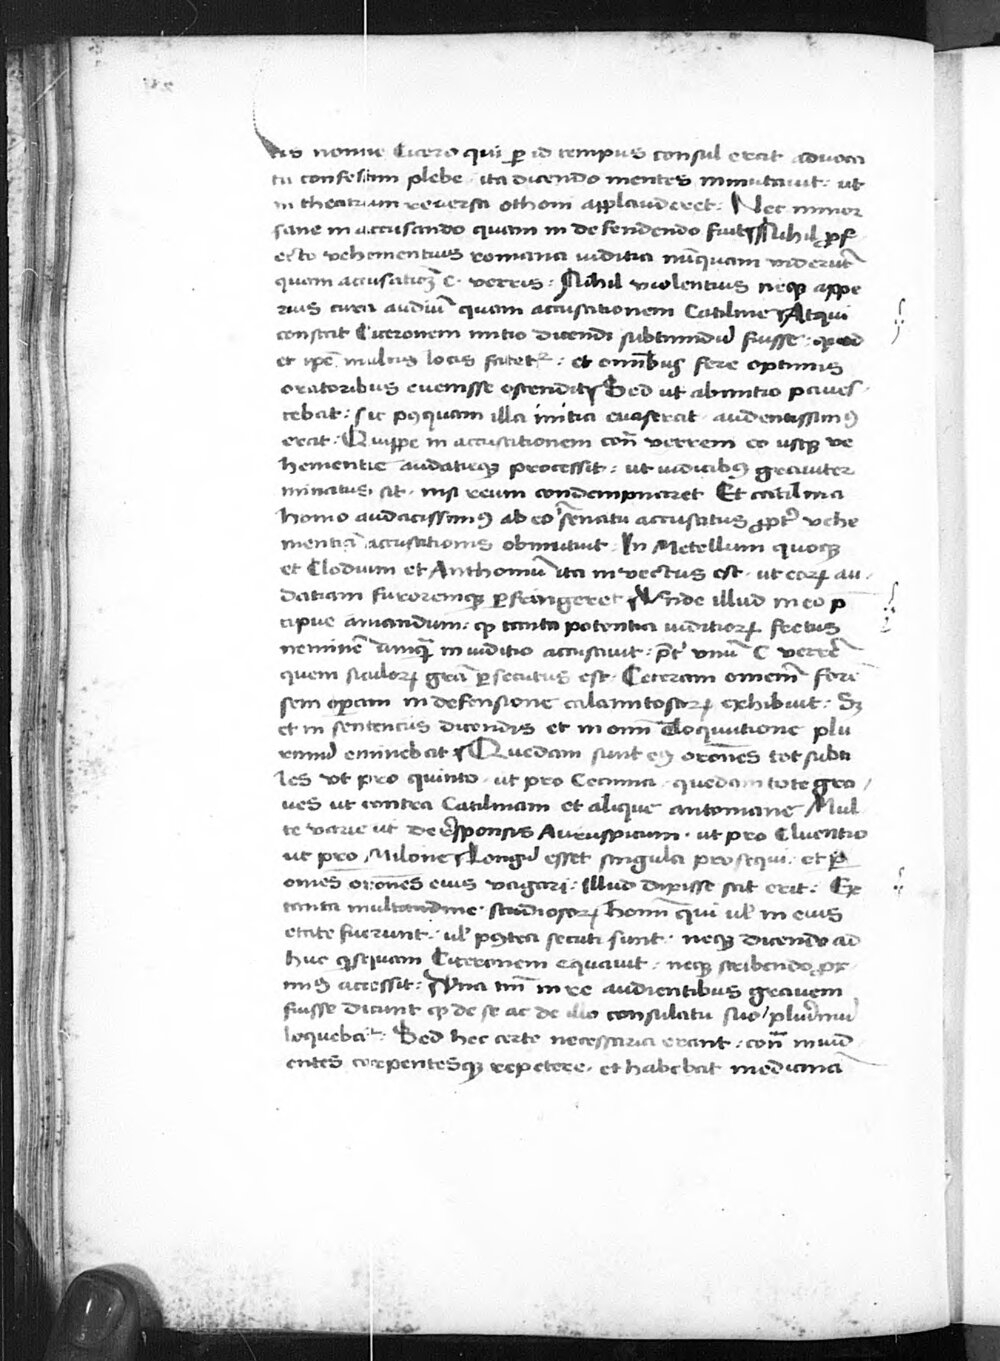 tis nomine Cicero qui ꝑ id tempus consul erat aduoca
ta confestim plebe · ita dicendo mentes inmutauit : ut
in theatrum reuersa othoni applauderet : Nec minor
sane in accusando quam in defendendo fuit Nihil ꝓf
ecto vehementius romana iuditia nūquam viderūt
quam accusatiōꝫ C · verris : Nihil violentius neqꝫ aspe
rius curia audiuī quam accusationem Catiline Atqui
constat Ciceronem initio dicendi subtimidū fuisse : quod
et ipē multis locis fatetr : et omībus fere optimis
oratoribus euenisse ostendit Sed ut ab initio paues
cebat : sic pꝯquam illa initia euaserat · audentissimꝯ
erat : Quippe in accusationem conͣ verrem eo usqꝫ ve
hementie audatieqꝫ processit : ut iudicibꝯ grauiter
minatus sit · nisi reum condempnaret Et catilina
homo audacissimꝯ ab eo ī senatu accusatus ꝓpter vehe
mentiā accusationis obmutuit · In Metellum quoqꝫ
et Clodium et Anthoniū ita inuectus est · ut eorꝝ au
datiam furoremqꝫ ꝑfringeret Unde illud in eo p̄
cipue amandum : ꝙ tanta potentia iuditiorꝝ fretus
neminē unqꝫ in iuditio accusauit : pt̄ vnū C verrē
quem siculorꝝ grā ꝑsecutus est · Ceteram omnem fore
sem opam in defensione calamitosorꝝ exhibuit : Sꝫ
et in sententiis dicendis et in omī eloquutione plu
rimū eminebat Quedam sunt eꝯ orōnes tot subti
les vt pro quinto · ut pro Cecinna · quedam tote gra
ues ut contra Catilinam et alique antoniane Mul
te varie ut de rēsponsis Auruspicum · ut pro Cluentio
ut pro Milone Longū esset singula prosequi · et ꝑ
omēs orōnes eius vagari : illud dixisse sat erit : Ex
tanta multitudine · studiosorꝝ homī qui ul' in eius
etate fuerunt · ul' pꝯtea secuti sunt · neqꝫ dicendo ad
huc qͥsquam Ciceronem equauit · neqꝫ scribendo ꝓx
imꝯ accessit : Una tn̄ in re audientibus grauem
fuisse dicunt ꝙ de se ac de illo consulatu suo / plurimū
loquebat : Sed hec certe necessaria erant · conͣ inuid
entes carpentesqꝫ repetere · et habebat medicinā